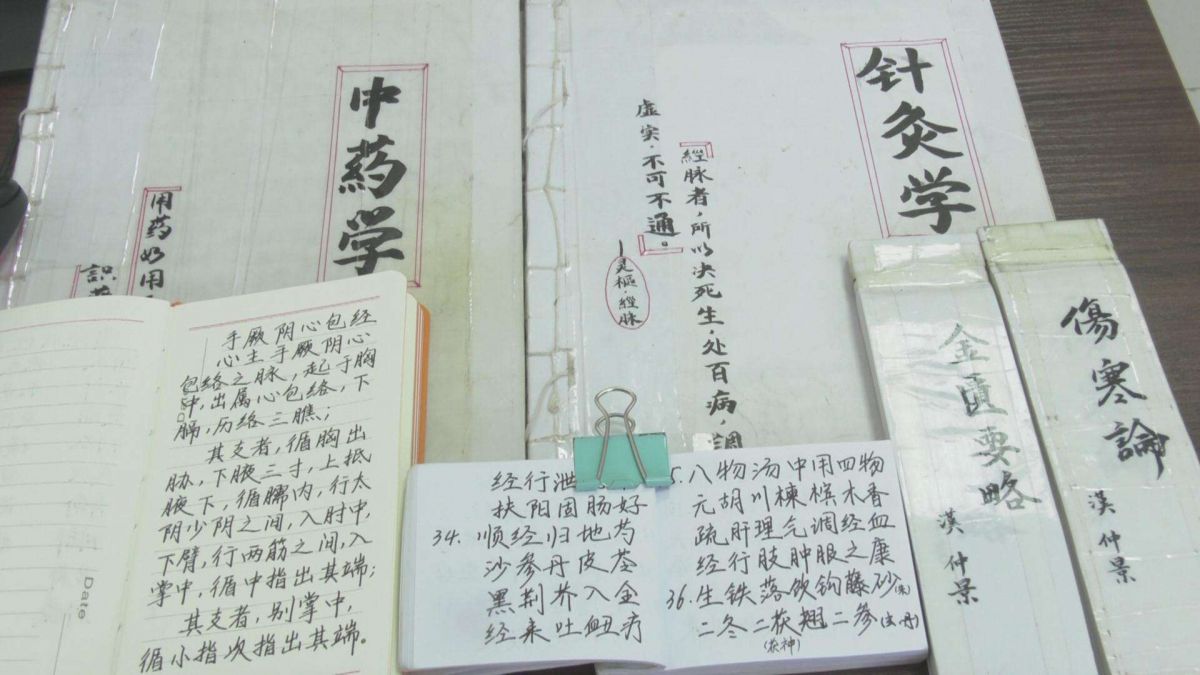 中药学
用药如用
识
针灸学
經脉者，所以决死生，处百病，調
虚实，不可不通。
—灵樞·經脉
金匱要略
漢 仲景
傷寒論
漢 仲景
手厥阴心包经
心主手厥阴心
包络之脉，起于胸
中，出属心包络，下
膈，历络三膲；
其支者，循胸出
胁，下腋三寸，上抵
腋下，循臑内，行太
阴少阴之间，入肘中，
下臂，行两筋之间，入
掌中，循中指出其端；
其支者，别掌中，
循小指次指出其端。
Date
经行泄
扶阳固肠好
34.顺经归地芍
沙参丹皮苓
黑荆芥入金
经来吐衄疗
5.八物汤中用四物
元胡川楝槟木香
疏肝理气调经血
经行肢肿服之廉
36.生铁落饮钩藤砂(朱)
二冬二茯翘二参(玄丹)
(茯神)